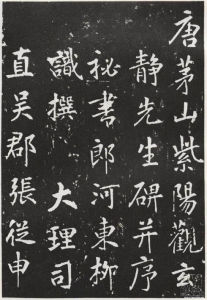 唐茅山紫陽觀玄
静先生碑并序
祕書郎河東柳
識撰 大理司
直吴郡張從申